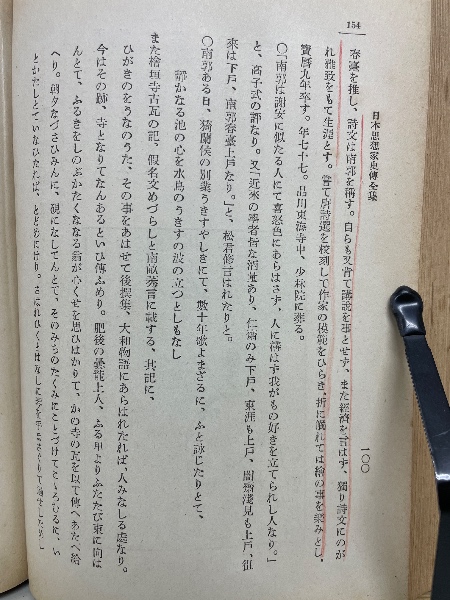 154
日本思想家史傳全集
一〇〇
春臺を推し、詩文は南郭を稱す。自らも又肯て講説を事とせず、また經濟を言はず、獨り詩文にのが
れ雅致をもて生涯とす。嘗て唐詩選を校刻して作家の模範をひらき、折に觸れては繪の事を樂みとし、
寶曆九年卒す。年七十七。品川東海寺中、少林院に葬る。
〇「南郭は謝安に似たる人にて喜怒色にあらはさず、人に構はず我がもの好きを立てられし人なり。」
と、高子式の評なり。又「近來の學者皆な酒量あり、仁齋のみ下戸、東涯も上戸、闇齋淺見も上戸、徂
來は下戸、南郭春臺上戸なり。」と、松君修言はれたりと。
〇南郭ある日、猗蘭侯の別業うきすやしきにて、數十年歌よまざるに、ふと詠じたりとて、
靜かなる池の心を水鳥のうきすの波の立つとしもなし
また檜垣寺古瓦の記、假名文めづらしと南畝莠言に載する、其記に、
ひがきのをうなのうた、その事をあはせて後撰集、大和物語にあらはれたれば、人みなしる處なり。
今はその跡、寺となりてなんあるといひ傳ふめり。肥後の曇龍上人、ふる里よりふたたび東に向は
んとて、ふるきをしのぶかたくななる翁が心ぐせを思ひはかりて、かの寺の瓦を以て傳へあたへ給
へり。朝夕なづさひみんに、硯になしてんとて、そのみちのたくみにことづけてくろひるに、い